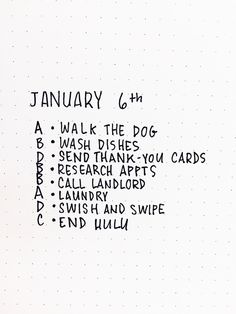 JANUARY 6th
A • WALK THE DOG
B • WASH DISHES
D • SEND THANK-YOU CARDS
B • RESEARCH APPTS
B • CALL LANDLORD
A • LAUNDRY
D • SWISH AND SWIPE
C • END HULU